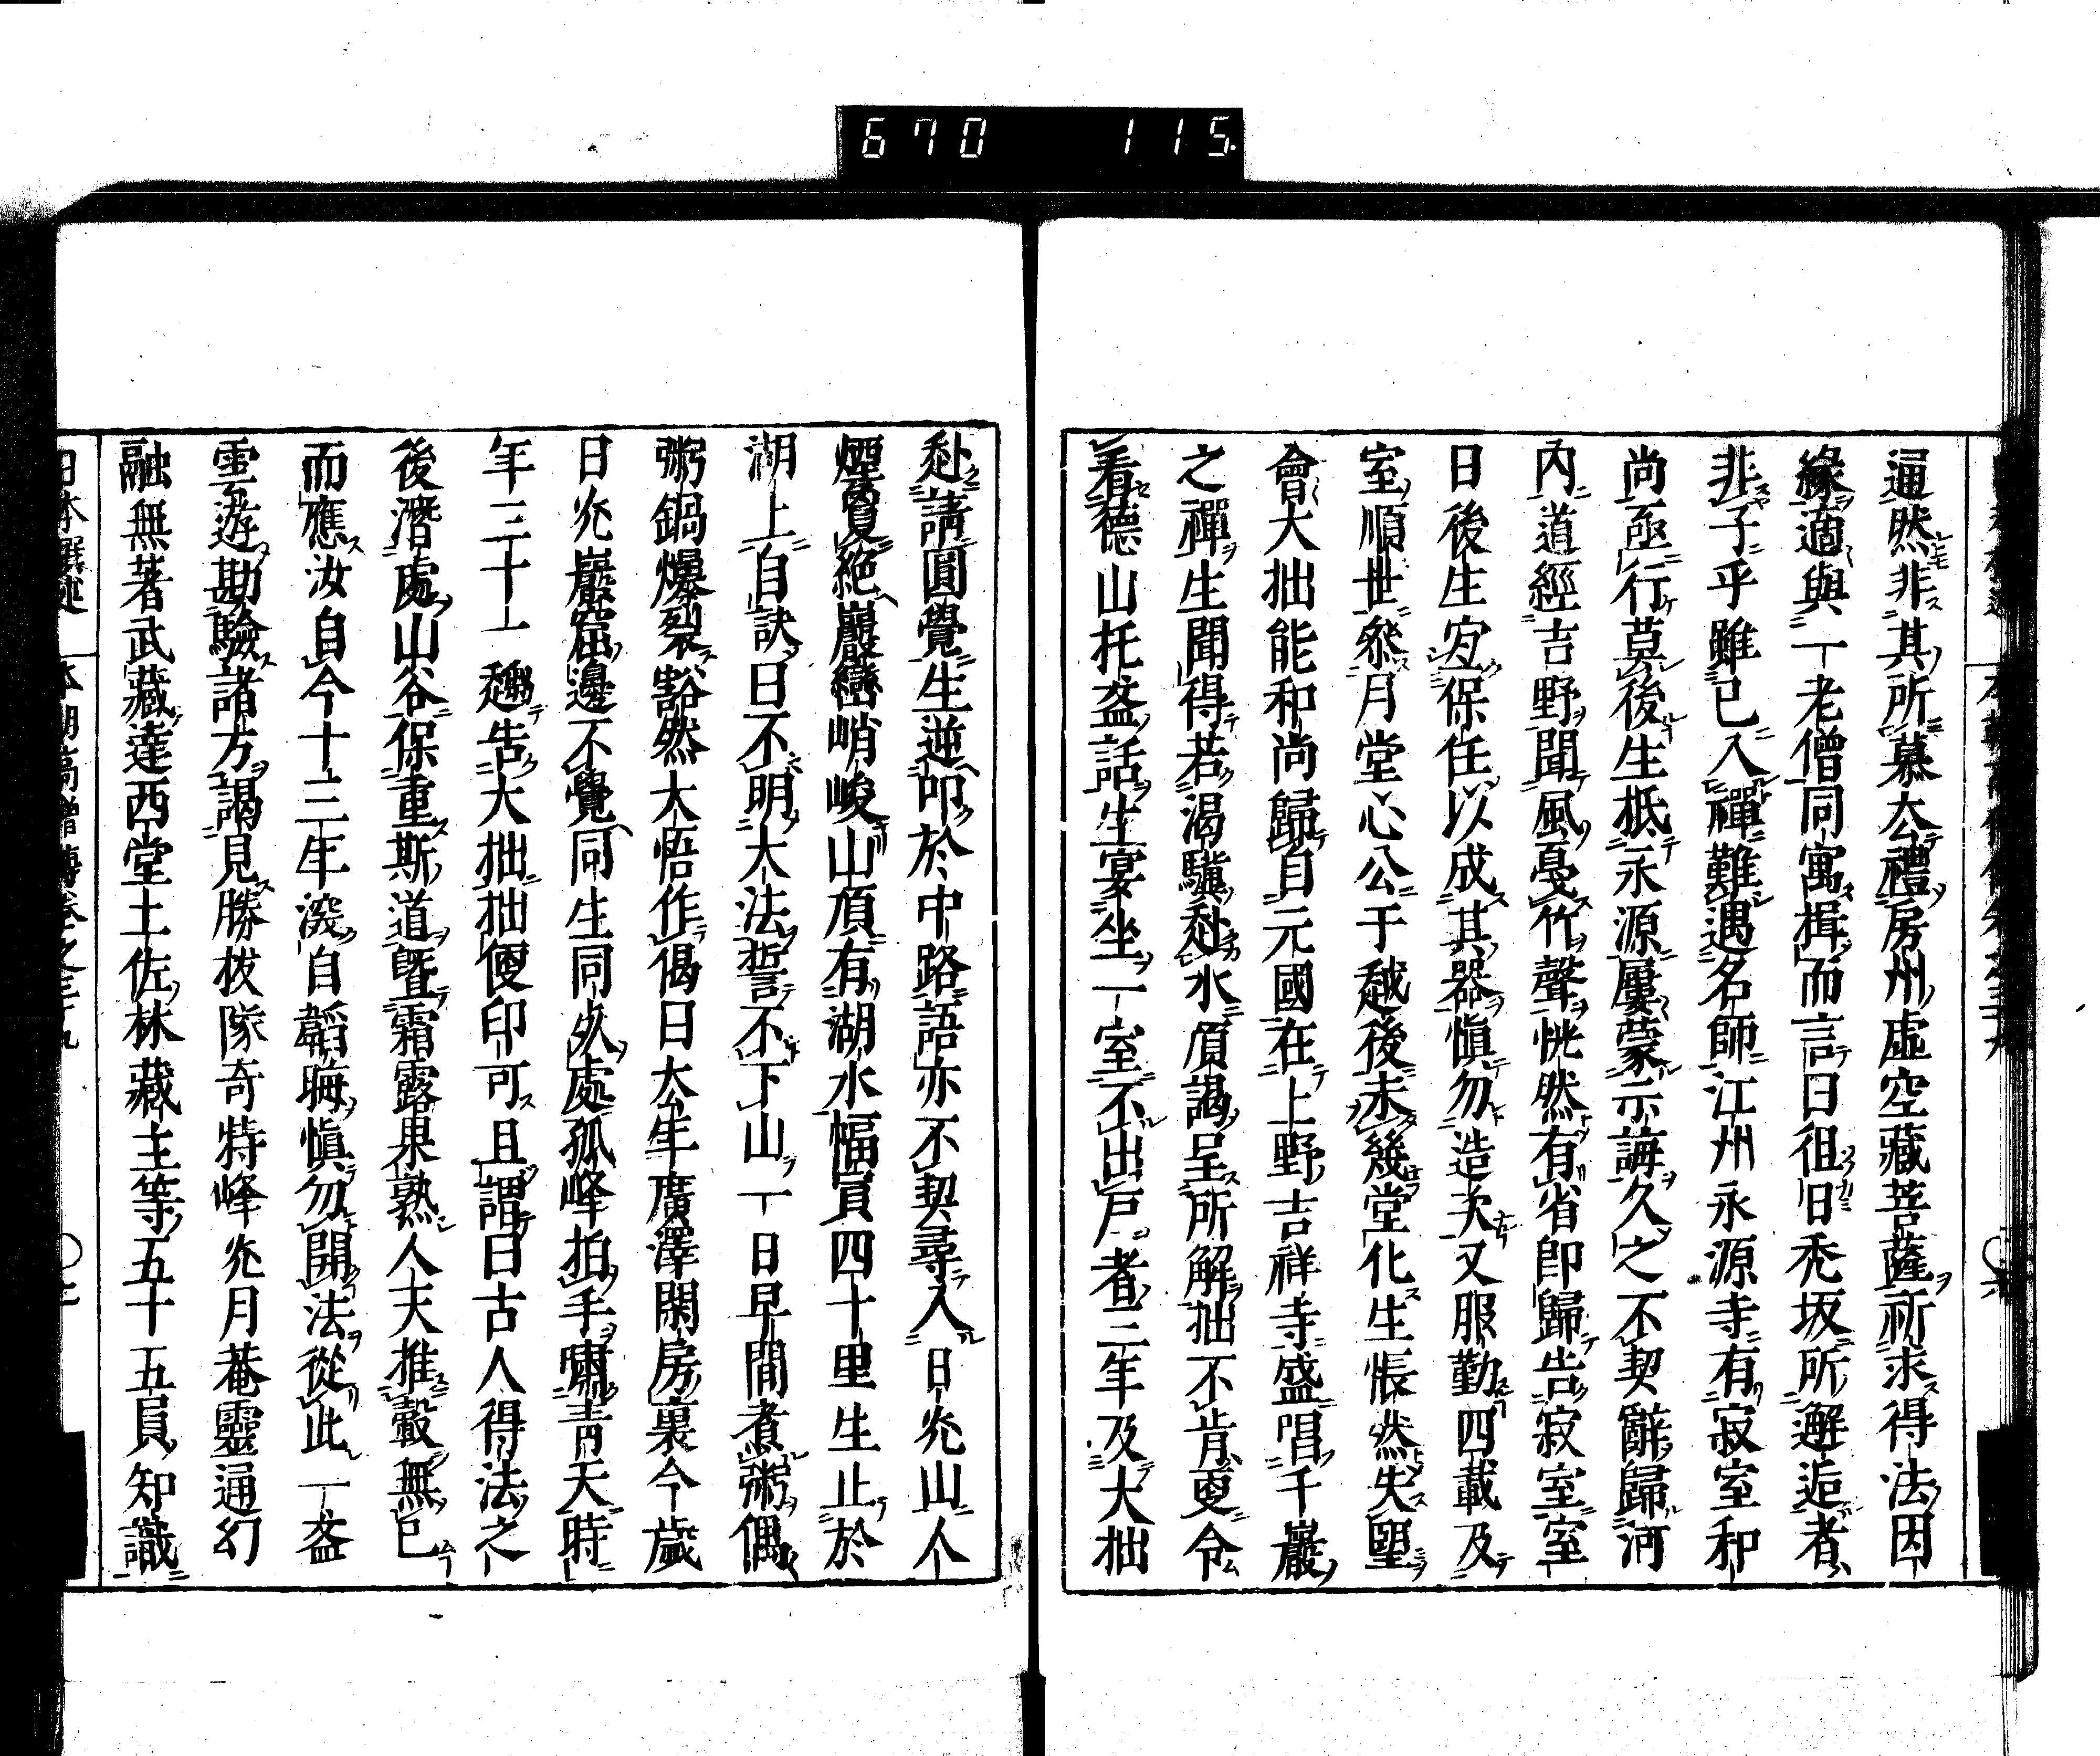 670 115
逼然非其所慕公禮房州虛空藏菩薩祈求得法因
緣適與一老僧同寓揖而言曰徂旧禿坂所邂逅者
非子乎雖已入禪難遇名師江州永源寺有寂室和
尚亟行莫後生抵永源屢蒙示誨久之不契辭歸河
內道經吉野聞風戞竹聲恍然有省卽歸告寂室室
曰後生宐保任以成其器愼勿造次又服勤四載及
室順世叅月堂心公于越後未幾堂化生悵然失望
會大拙能和尚歸自元國在上野吉祥寺盛唱千巖
之禪生聞得若渴驥赴水頂謁呈所解拙不肯更令
看德山托盋話生宴坐一室不出戶者三年及大拙
赴請圓覺生逆卬於中路語亦不契尋入日光山人
煙夐絕巖巒峭峻山頂有湖水幅員四十里生止於
湖上自訣曰不明大法誓不下山一日早間煮粥偶
粥鍋爆裂豁然大悟作偈曰大年廣澤閑房裏今歲
日光巖窟邊不覺同生同久處孤峰拍手嘯靑天時
年三十一趨告大拙拙便印可且謂曰古人得法之
後潛處山谷保重斯道曁霜露果熟人天推轂無已
而應汝自今十三年深自韜晦愼勿開法從此一盋
雲遊勘驗諸方謁見勝拔隊奇特峰光月菴靈通幻
融無著武藏達西堂土佐林藏主等五十五員知識
日本撰述 本朝高僧傳卷之三十九